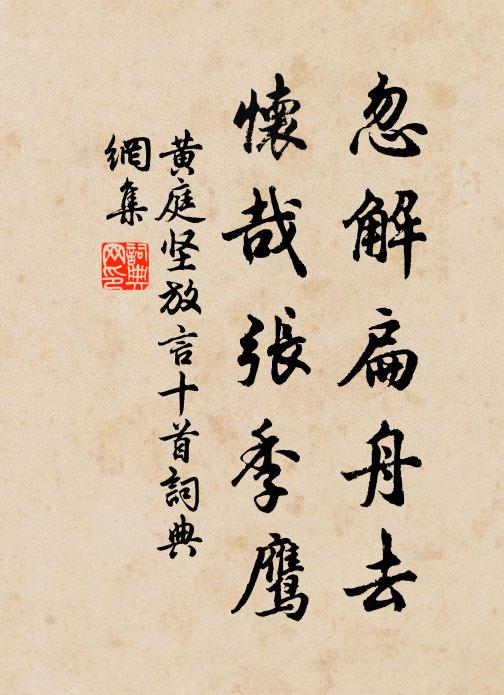 忽解扁舟去
懷哉張季鷹
黄庭坚放言十首詞典
網集
詞典
网印